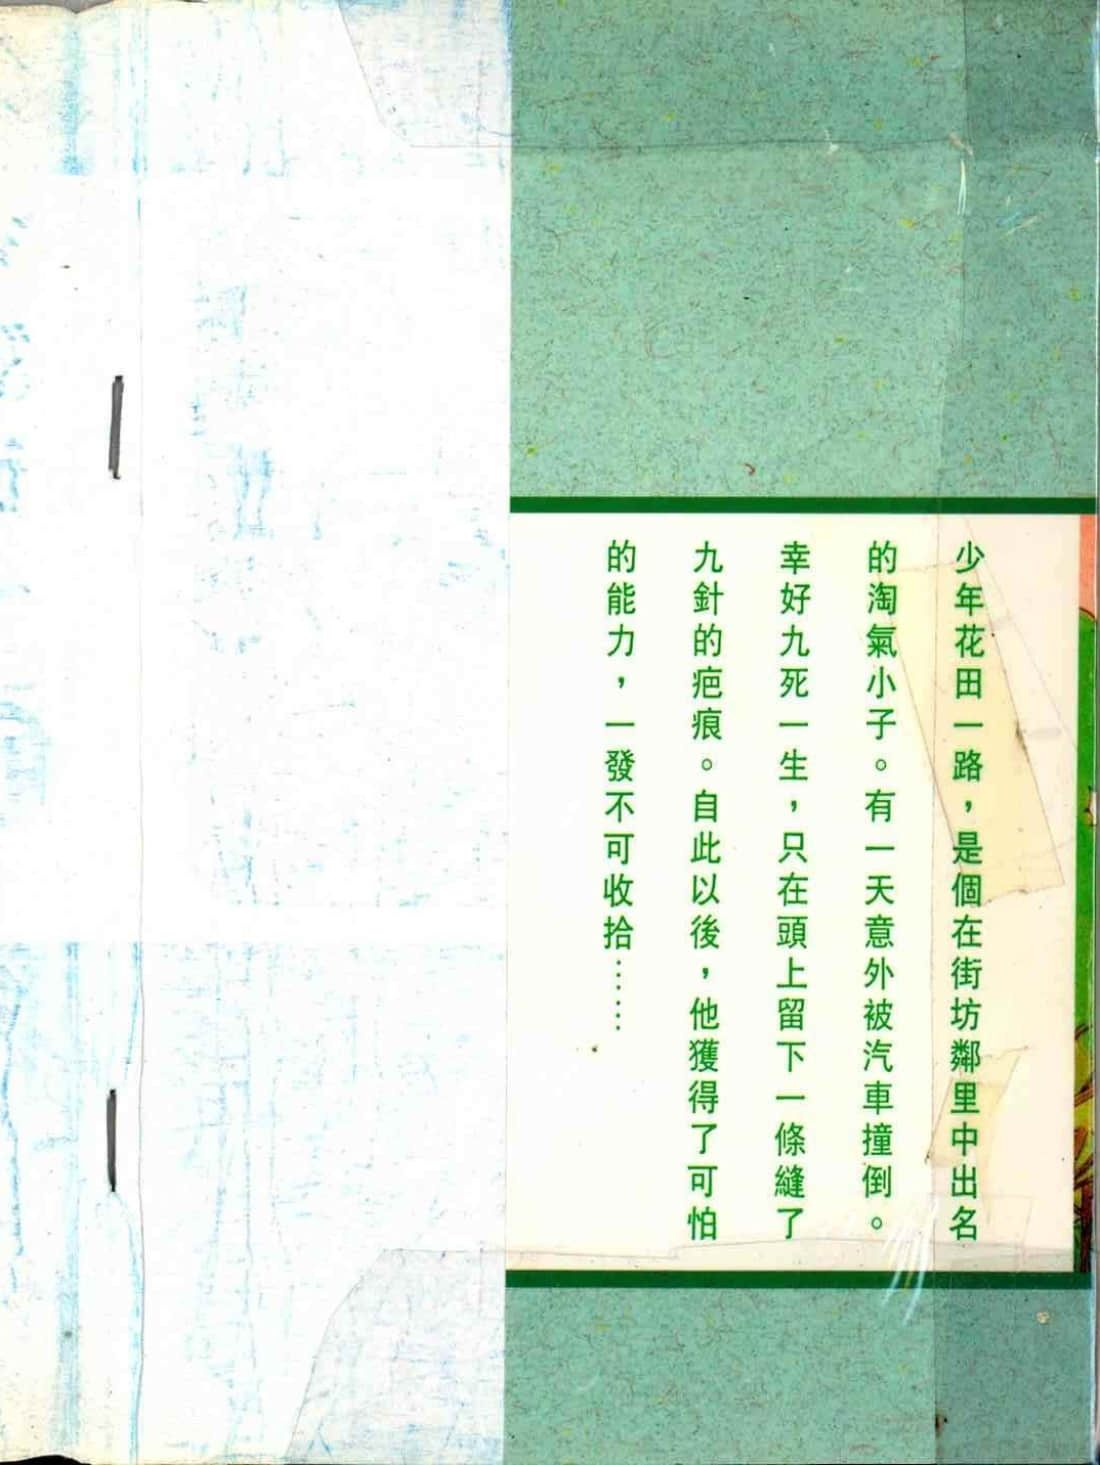 少年花田一路，是個在街坊鄰里中出名
的淘氣小子。有一天意外被汽車撞倒。
幸好九死一生，只在頭上留下一條縫了
九針的疤痕。自此以後，他獲得了可怕
的能力，一發不可收拾……